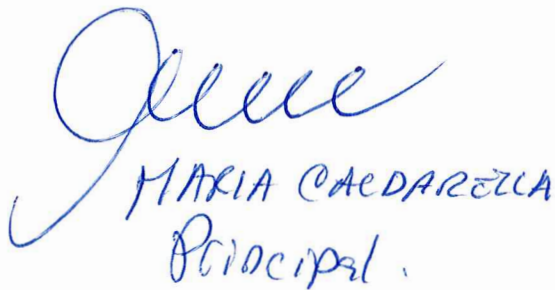 MARIA CALDARELLA
Principal.